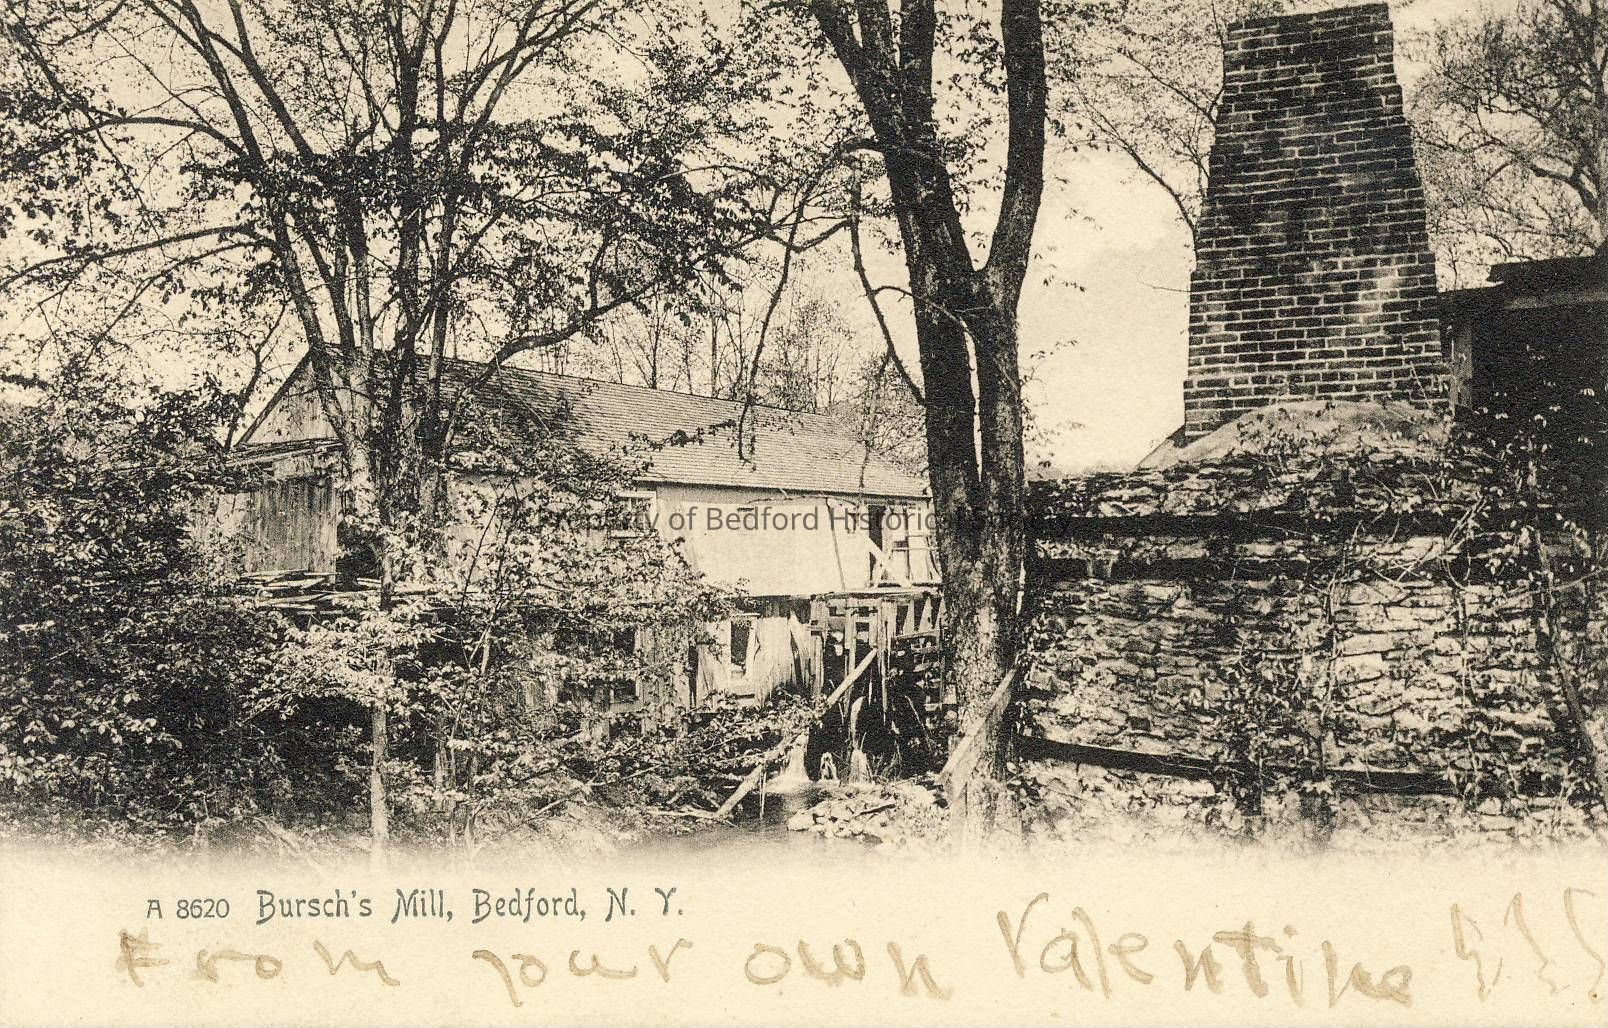 Property of Bedford Historical Society
A 8620 Bursch's Mill, Bedford, N. Y.
From your own Valentine